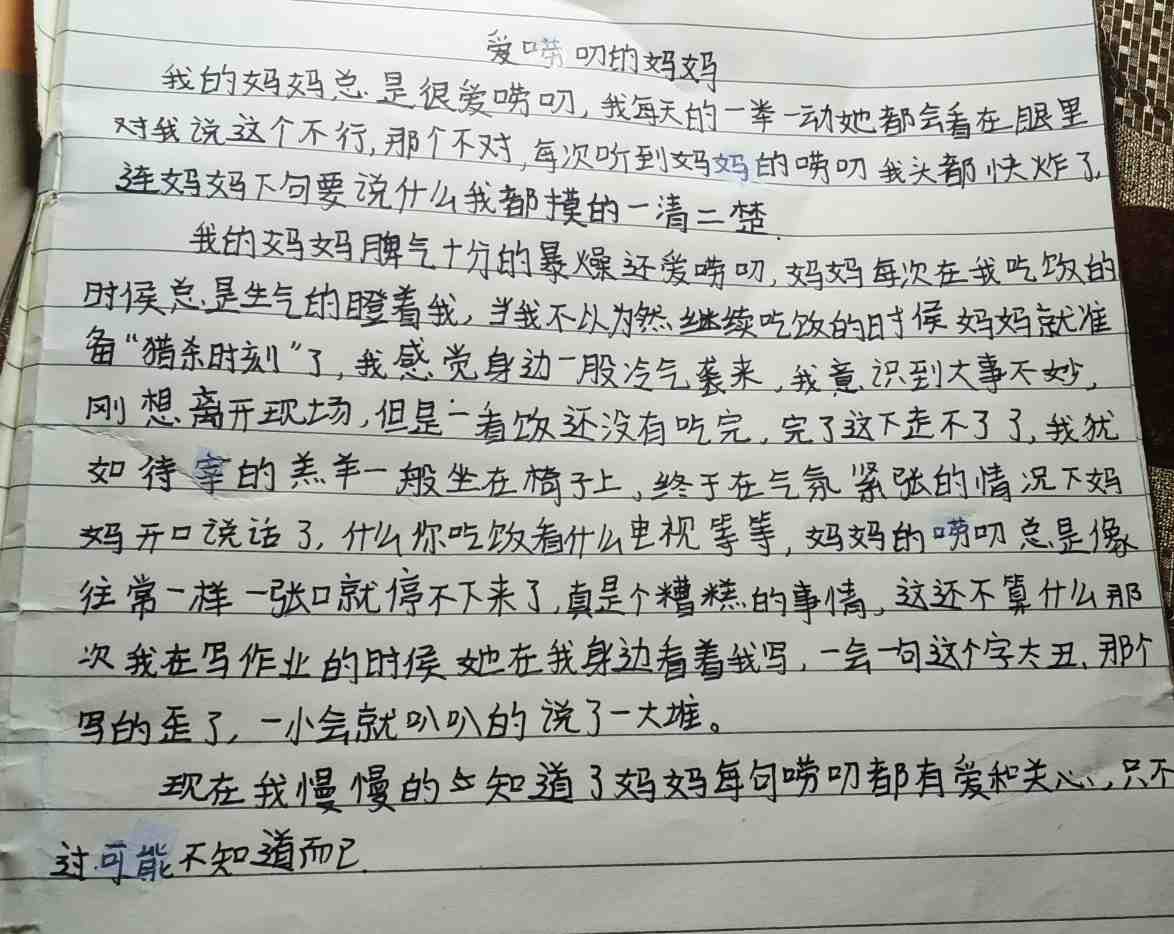 爱唠叨的妈妈
我的妈妈总是很爱唠叨,我每天的一举一动她都会看在眼里
对我说这个不行,那个不对,每次听到妈妈的唠叨我头都快炸了,
连妈妈下句要说什么我都摸的一清二楚.
我的妈妈脾气十分的暴燥还爱唠叨,妈妈每次在我吃饭的
时候总是生气的瞪着我,当我不以为然继续吃饭的时候妈妈就准
备“猎杀时刻”了,我感觉身边一股冷气袭来,我意识到大事不妙,
刚想离开现场,但是一看饭还没有吃完,完了这下走不了了,我犹
如待宰的羔羊一般坐在椅子上,终于在气氛紧张的情况下妈
妈开口说话了,什么你吃饭看什么电视等等,妈妈的唠叨总是像
往常一样一张口就停不下来了,真是个糟糕的事情,这还不算什么那
次我在写作业的时候她在我身边看着我写,一会一句这个字太丑、那个
写的歪了,一小会就叭叭的说了一大堆。
现在我慢慢的知道了妈妈每句唠叨都有爱和关心,只不
过可能不知道而已.